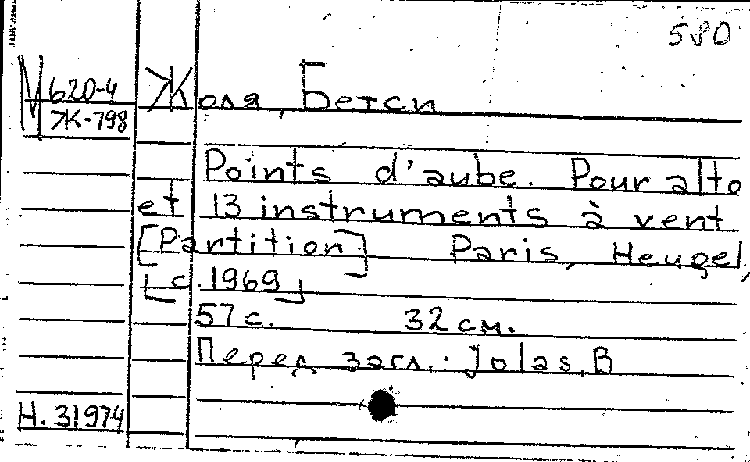 580
М620-4
Ж-798
Жоля, Бетси
Points d'aube. Pour alto
et 13 instruments à vent
[Partition] Paris, Heugel,
[c.1969]
57 с. 32 см.
Перед загл.: Jolas, B
Н. 31974